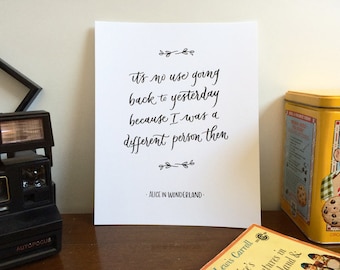 it's no use going
back to yesterday
because I was a
different person then
· ALICE IN WONDERLAND ·
AUTOFOCUS
Lewis Carroll